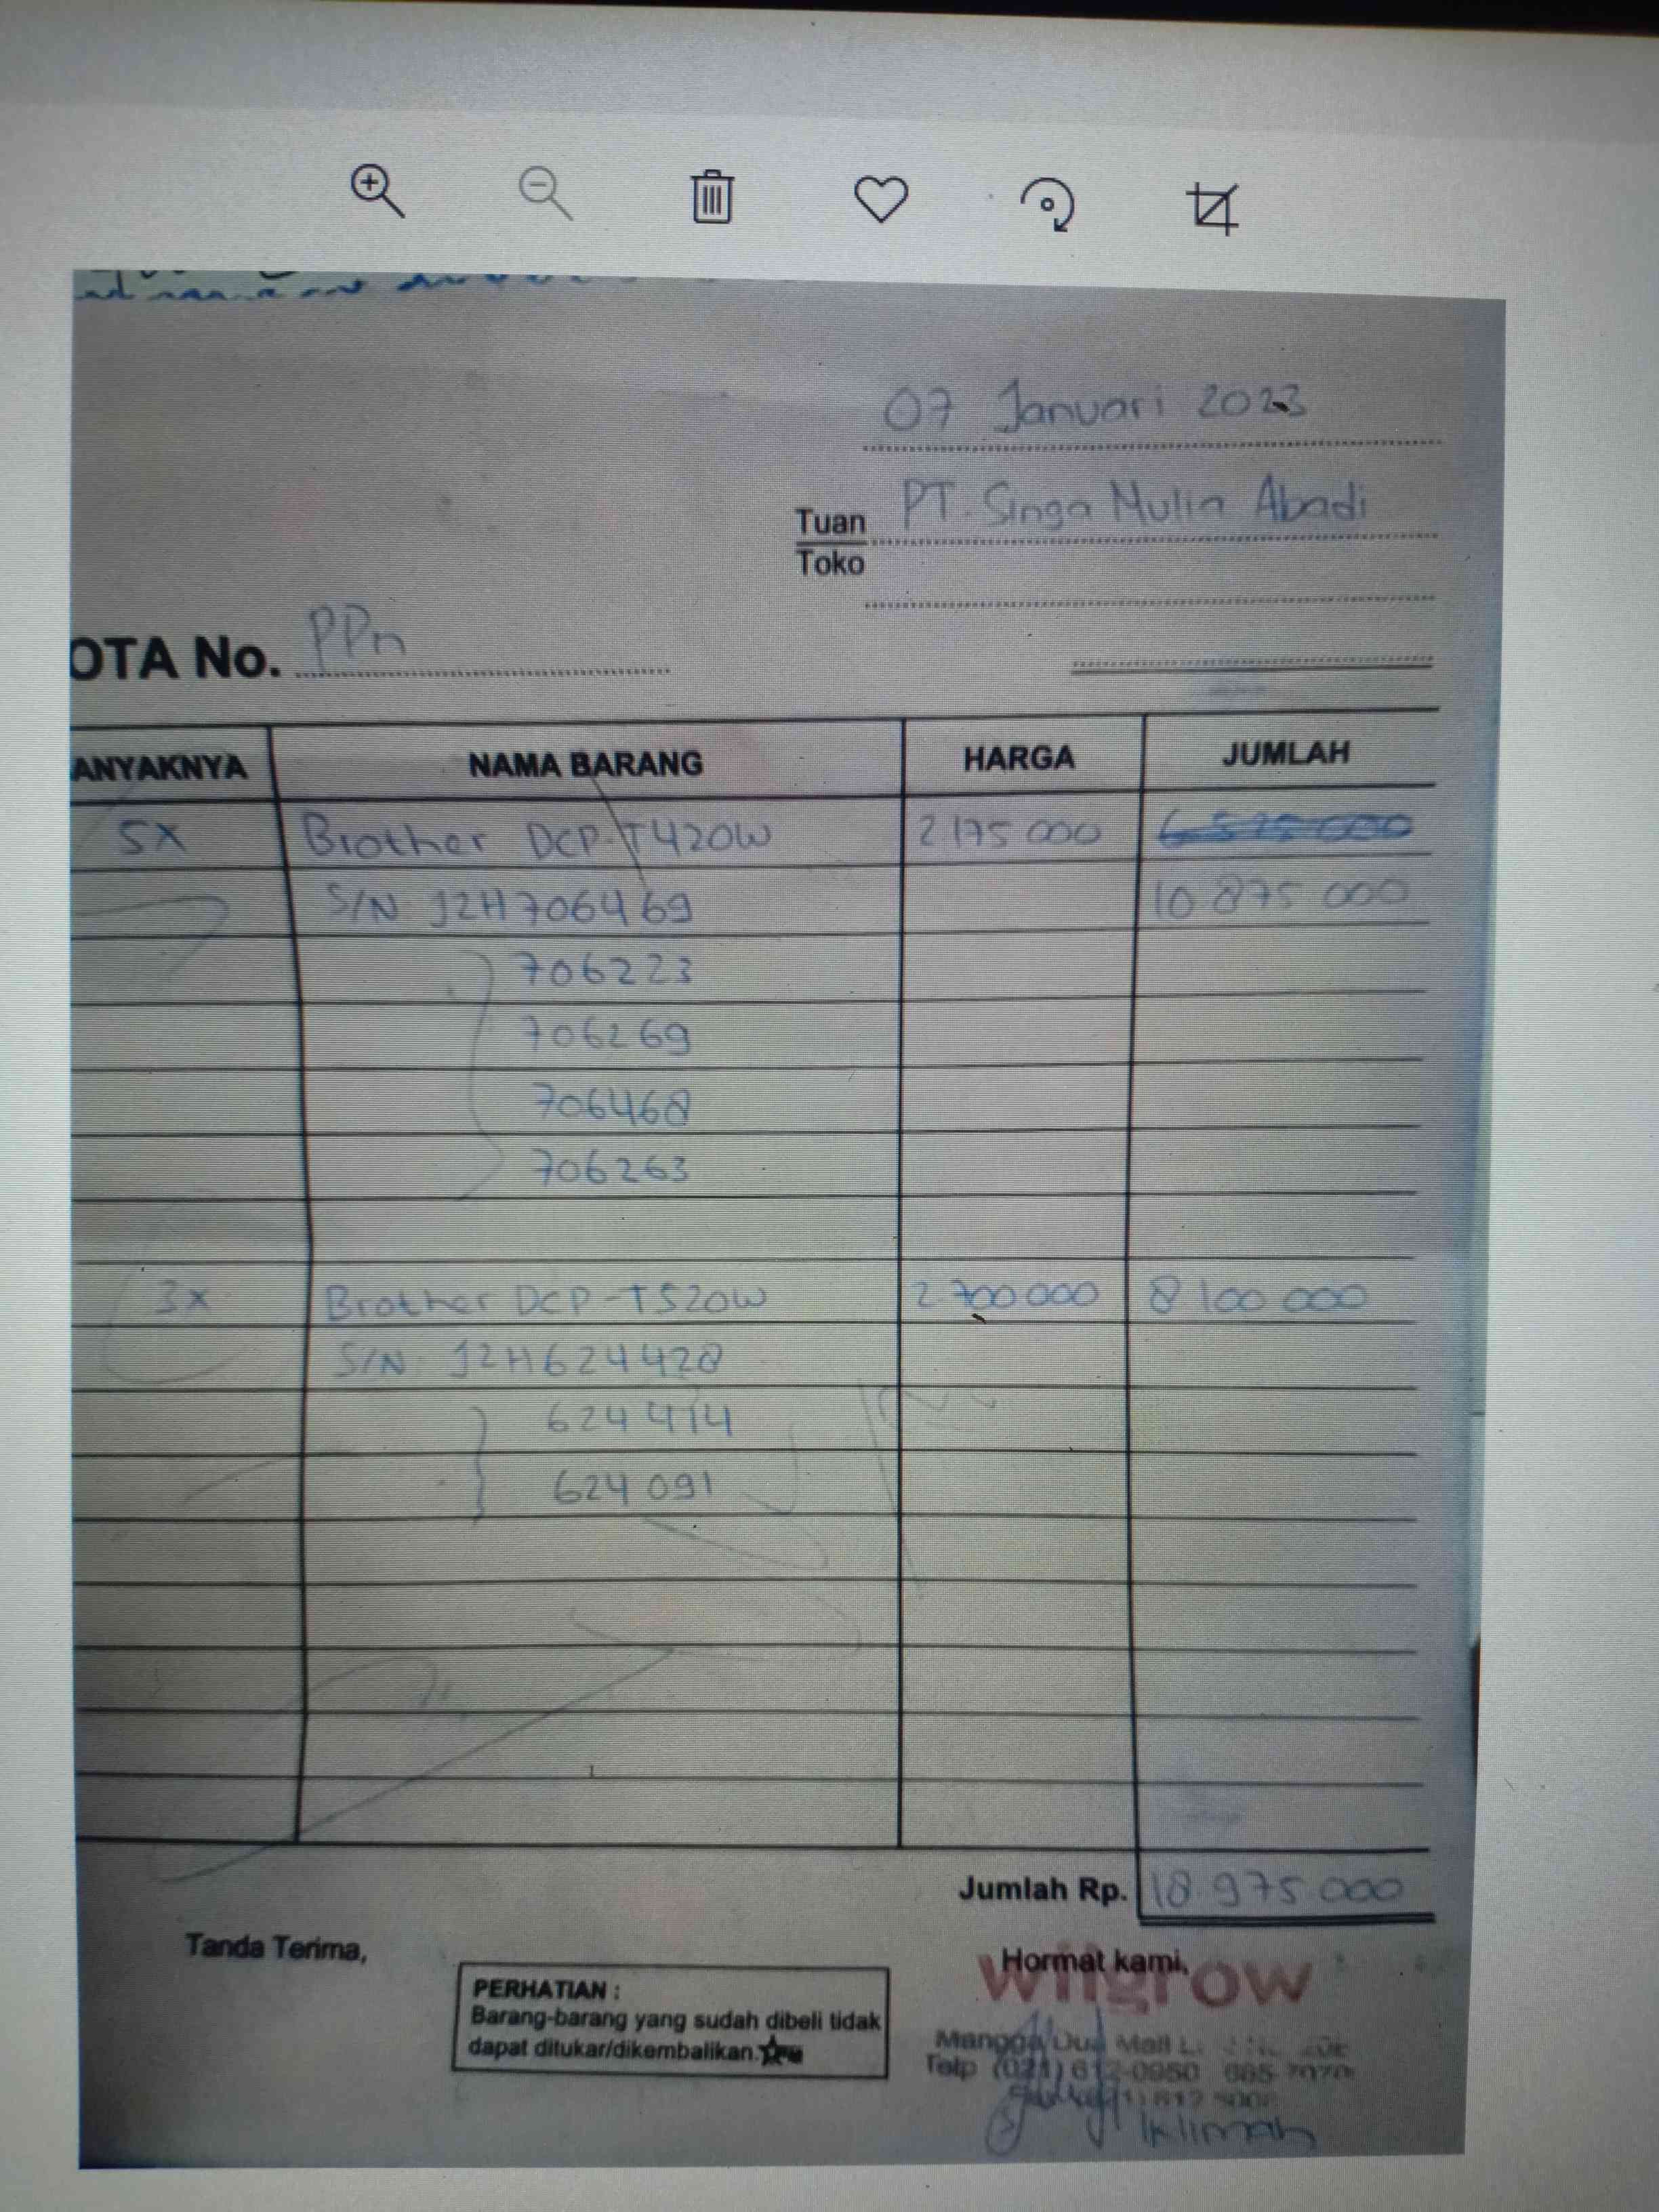 07 Januari 2023
Tuan PT. Singa Mulia Abadi
Toko
OTA No. PPn
ANYAKNYA NAMA BARANG HARGA JUMLAH
5x Brother DCP-T420W 2 175 000 6 525 000
S/N J2H706469 10 875 000
706223
706269
706468
706263
3x Brother DCP-T520W 2 700 000 8 100 000
S/N J2H624428
624414
624091
Jumlah Rp. 18 975 000
Tanda Terima,
Hormat kami,
wilgrow
PERHATIAN :
Barang-barang yang sudah dibeli tidak
dapat ditukar/dikembalikan.
Mangga Dua Mall
Telp (021) 612-0950